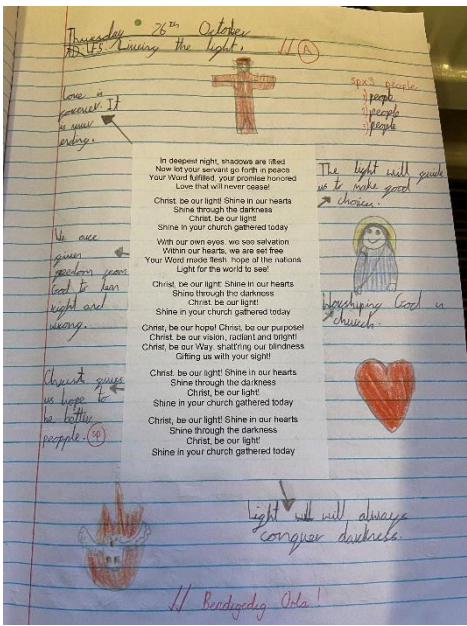 Thursday 26th October
LF5 Living the light. // A
Love is
forever. It
is never
ending.
spx3 people
1) people
2) people
3) people
In deepest night, shadows are lifted
Now let your servant go forth in peace
Your Word fulfilled, your promise honored
Love that will never cease!
Christ, be our light! Shine in our hearts
Shine through the darkness
Christ, be our light!
Shine in your church gathered today
With our own eyes, we see salvation
Within our hearts, we are set free
Your Word made flesh, hope of the nations
Light for the world to see!
Christ, be our light! Shine in our hearts
Shine through the darkness
Christ, be our light!
Shine in your church gathered today
Christ, be our hope! Christ, be our purpose!
Christ, be our vision, radiant and bright!
Christ, be our Way, shatt'ring our blindness
Gifting us with your sight!
Christ, be our light! Shine in our hearts
Shine through the darkness
Christ, be our light!
Shine in your church gathered today
Christ, be our light! Shine in our hearts
Shine through the darkness
Christ, be our light!
Shine in your church gathered today
The light will guide
us to make good
choices.
We are
given
freedom from
God to
right and
wrong.
Worshiping God in
church.
Christ gives
us hope to
be better
peopple. sp
Light will will always
conquer darkness.
// Bendigedig Orla!